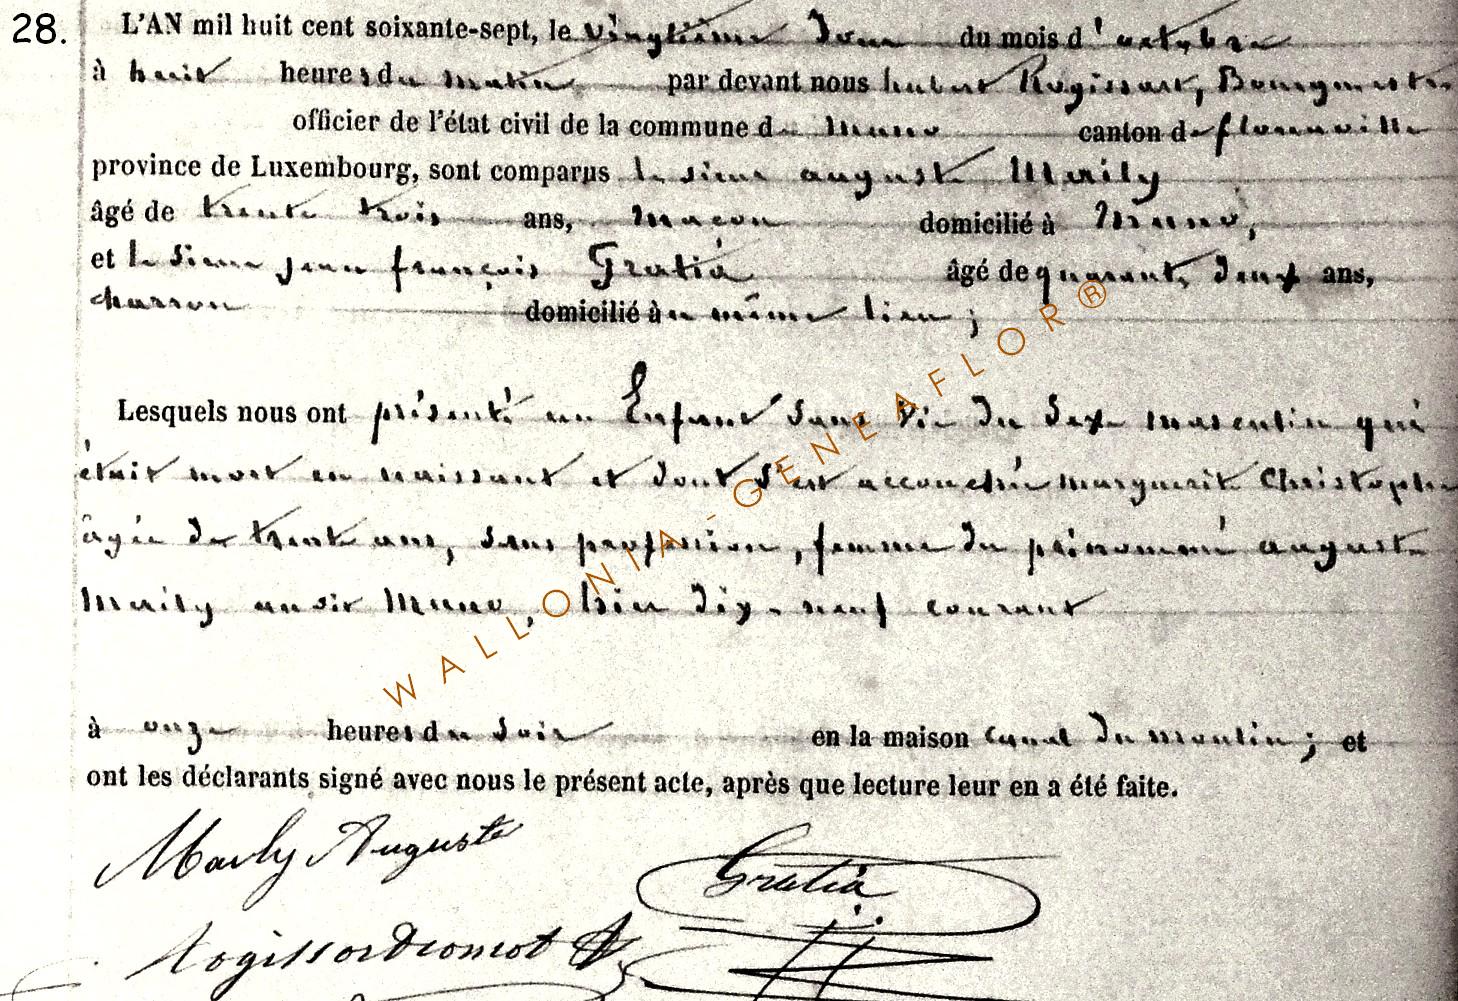 28.
L'AN mil huit cent soixante-sept, le vingtième Jour du mois d'octobre
à huit heures du matin par devant nous hubert Rogissart, Bourgmestre
officier de l'état civil de la commune de Muno canton de florenville
province de Luxembourg, sont comparus le sieur auguste Marly
âgé de trente trois ans, maçon domicilié à Muno,
et le sieur jean françois Gratia âgé de quarante deux ans,
charron domicilié au même lieu ;
Lesquels nous ont présenté un Enfant sans vie du Sexe masculin qui
était mort en naissant et dont s'est accouchée marguerite Christophe
âgée de trente ans, sans profession, femme du prénommé auguste
Marly au dit Muno, hier dix-neuf courant
à onze heures du soir en la maison canal du moulin ; et
ont les déclarants signé avec nous le présent acte, après que lecture leur en a été faite.
Marly Auguste
Gratia
WALLONIA - GENEAFLOR®